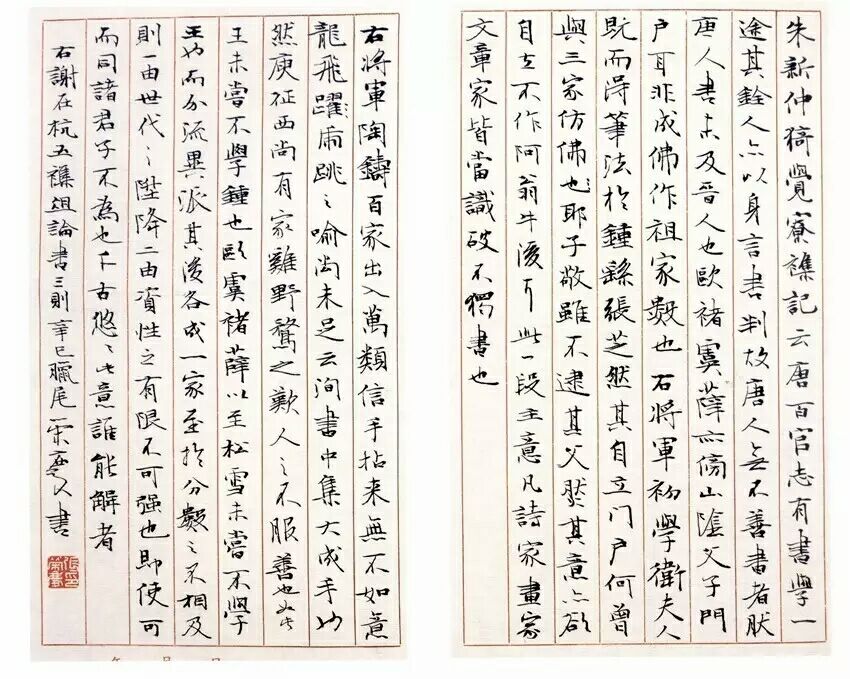 朱新仲猗覺寮襍記云唐百官志有書學一
途其銓人亦以身言書判故唐人無不善書者然
唐人書未及晉人也歐褚虞薛亦傍山陰父子門
戶耳非成佛作祖家數也右將軍初學衛夫人
既而得筆法於鍾繇張芝然其自立门户何曾
與三家仿佛也耶子敬雖不逮其父然其意亦欲
自立不作阿翁牛後耳此一段主意凡詩家畫家
文章家皆當識破不獨書也
右將軍陶鑄百家出入萬類信手拈来無不如意
龍飛躍虎跳之喻尚未足云洵書中集大成手也
然庾征西尚有家雞野鶩之歎人之不服善也如此
王未嘗不學鍾也歐虞褚薛以至松雪未嘗不學
王也而分流異派其後各成一家至於分數之不相及
則一由世代之陞降二由資性之有限不可强也即使可
而同諸君子不為也千古悠之此意誰能解者
右謝在杭五襍俎論書三則辛巳臘尾
書